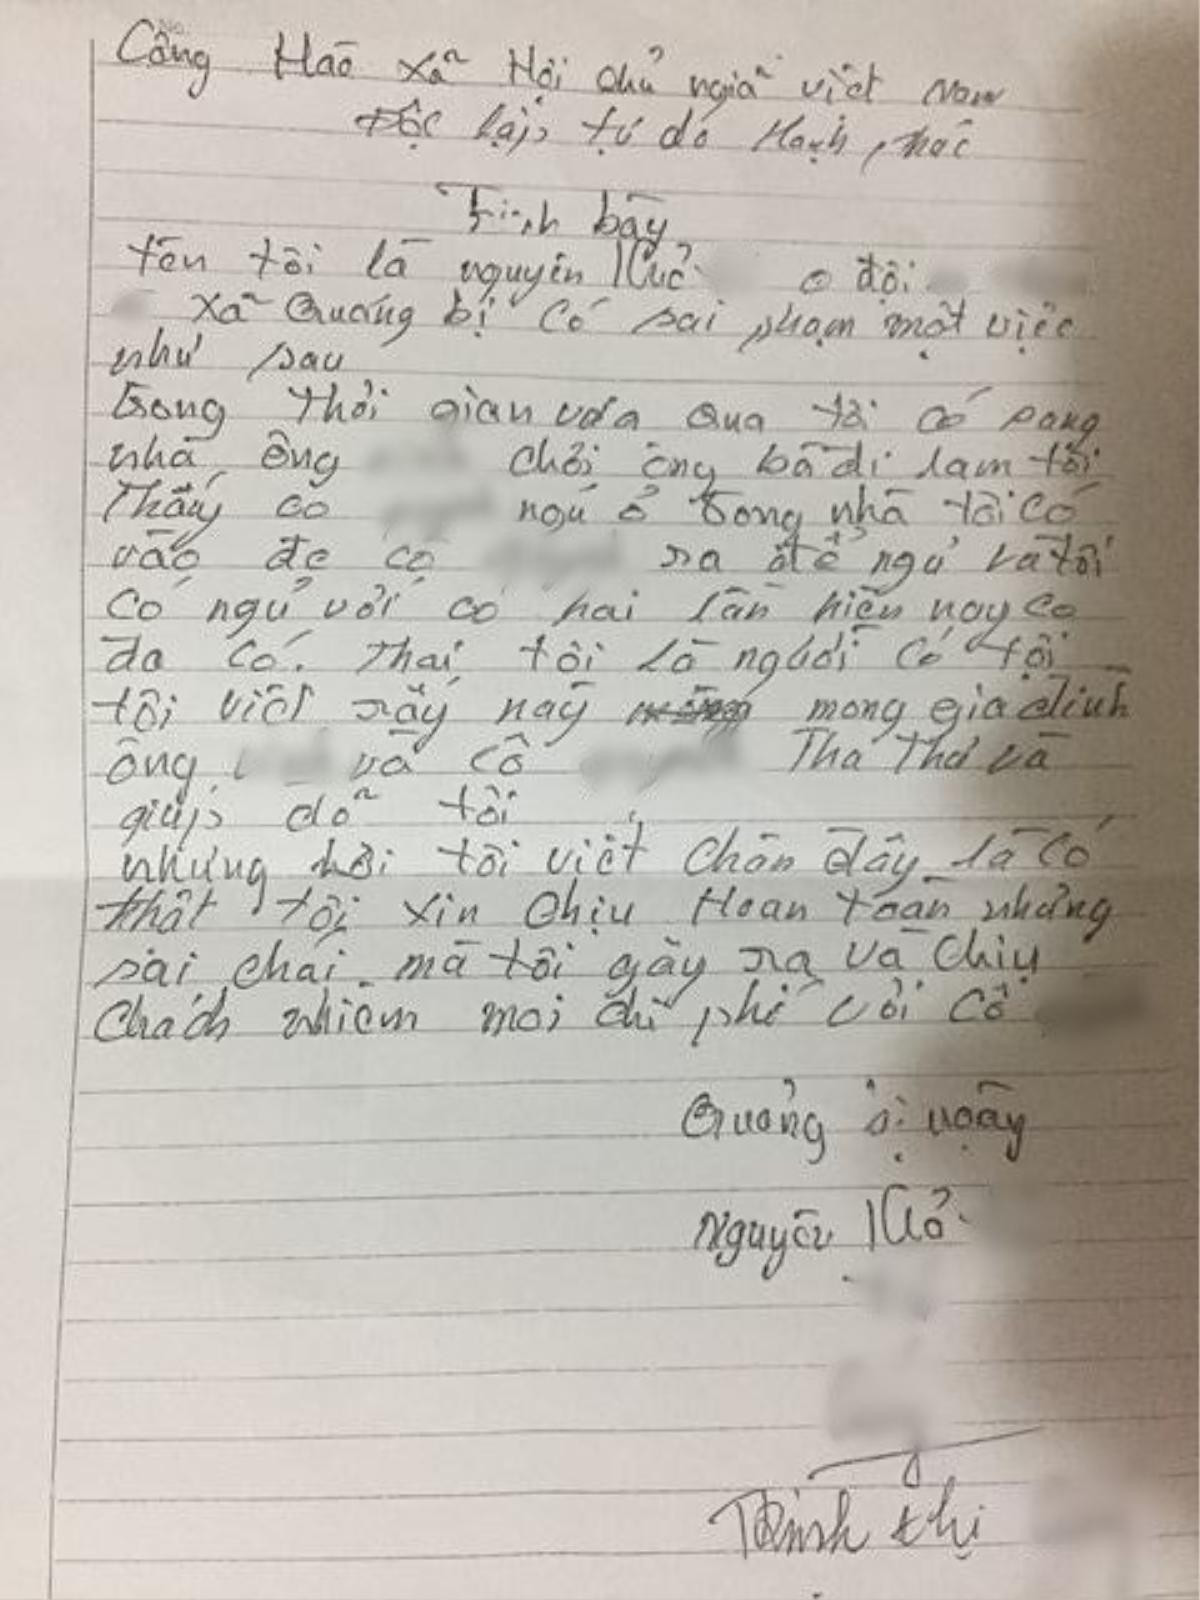 Công Hão xã Hội chủ ngiã việt Nam
Độc lập tự dó Hạnh phúc
Trình bầy
tên tôi là nguyên Khả ở đội
xã Quảng bị có sai phạm một việc
như sau
trong thời gian vưa qua tôi có sang
nhà ông chơi ông bà đi lam tôi
Thấy cô ngủ ở trong nhà tôi có
vào đe cô ra để ngủ và tôi
có ngủ với cô hai lần hiện nay cô
đa có thai tôi là người có tội
tôi viêt rấy nay mong gia đình
ông và cô Tha Thư và
giúp dỡ tôi
nhưng nời tôi viêt chên đây là có
thật tôi xin chịu Hoan toàn nhưng
sai chái mà tôi gây ra và chịu
chách nhiêm mọi chi phí với cô
Quảng bị ngày
Nguyên Khả
Trịnh thị